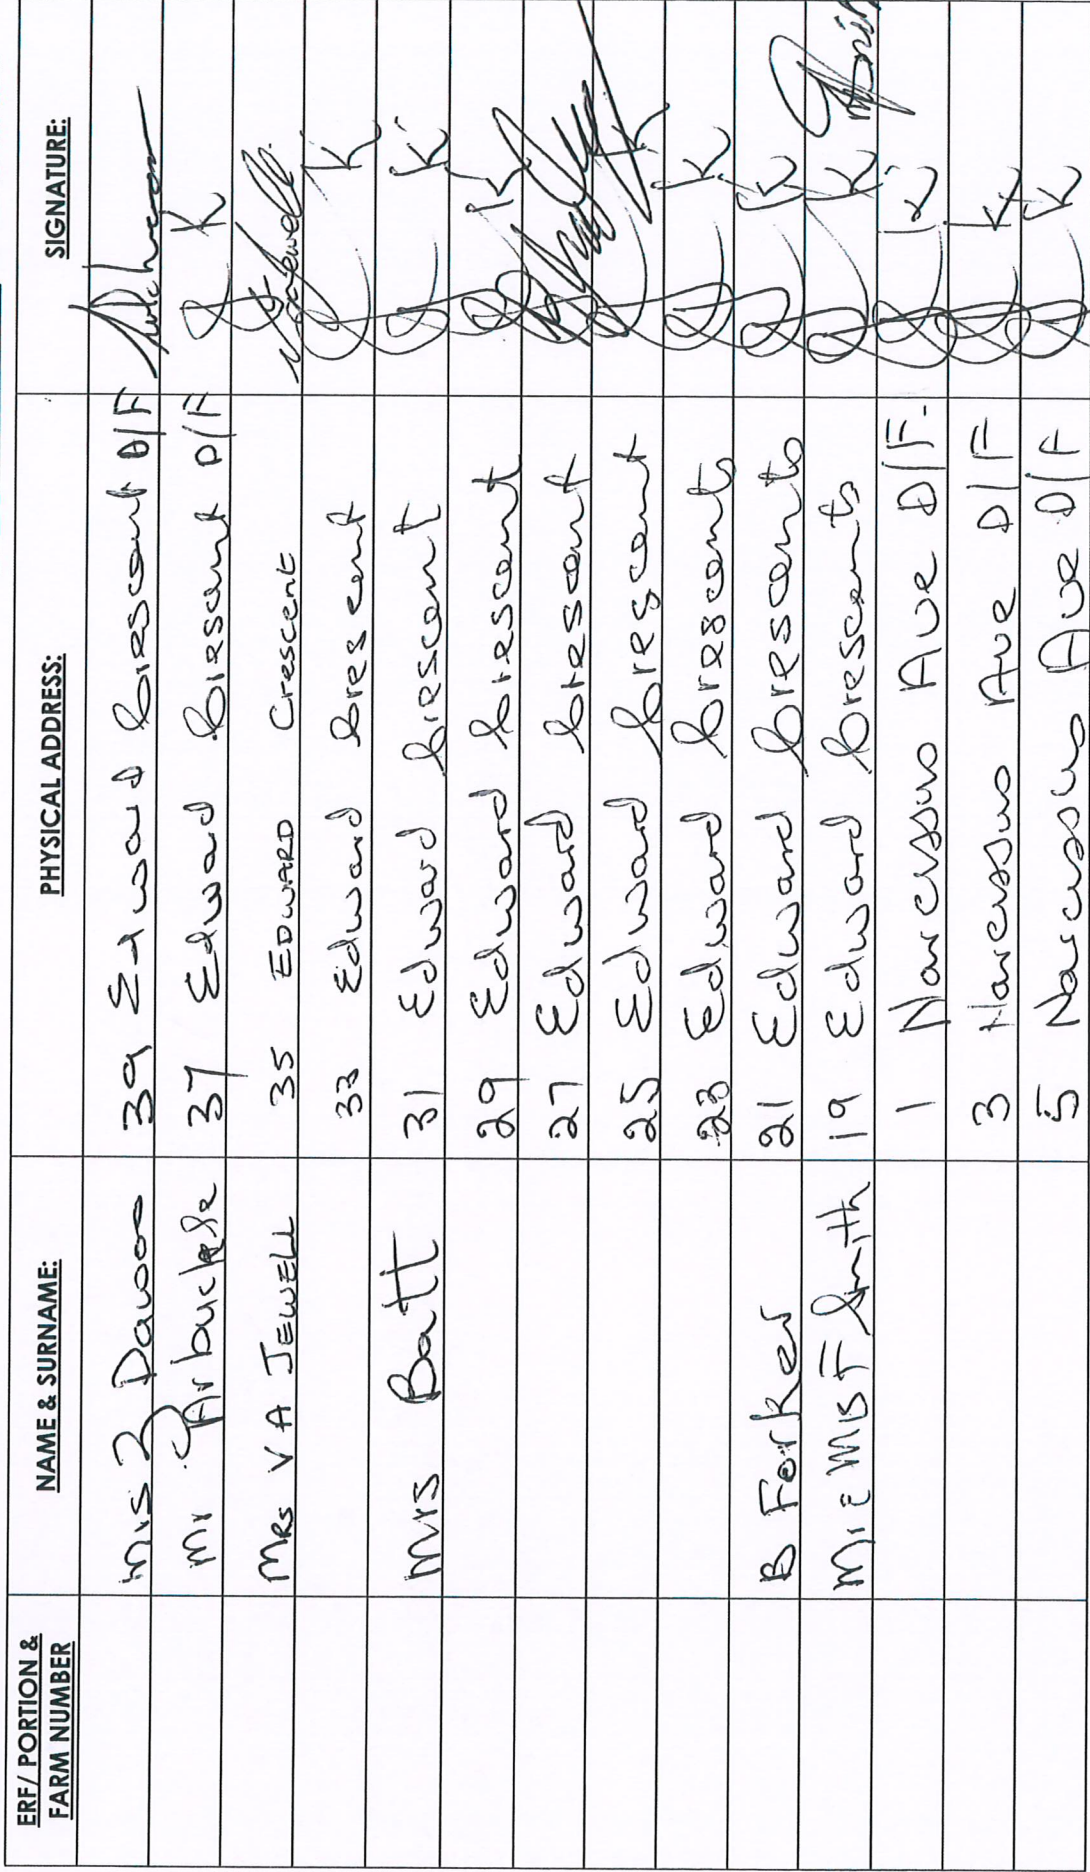 ERF/ PORTION & FARM NUMBER NAME & SURNAME: PHYSICAL ADDRESS: SIGNATURE:
Mrs Z 39 Edward Crescent D/F
Mr J Arbuckle 37 Edward Crescent D/F K
Mrs V A JEWELL 35 EDWARD Crescent Jewell
33 Edward Crescent K
Mrs Batt 31 Edward Crescent K
29 Edward Crescent K
27 Edward Crescent
25 Edward Crescent K
23 Edward Crescents K
B Forker 21 Edward Crescents K
Mr & Mrs F Smith 19 Edward Crescents K
1 Narcissus Ave D/F. K
3 Narcissus Ave D/F K
5 Narcissus Ave D/F K